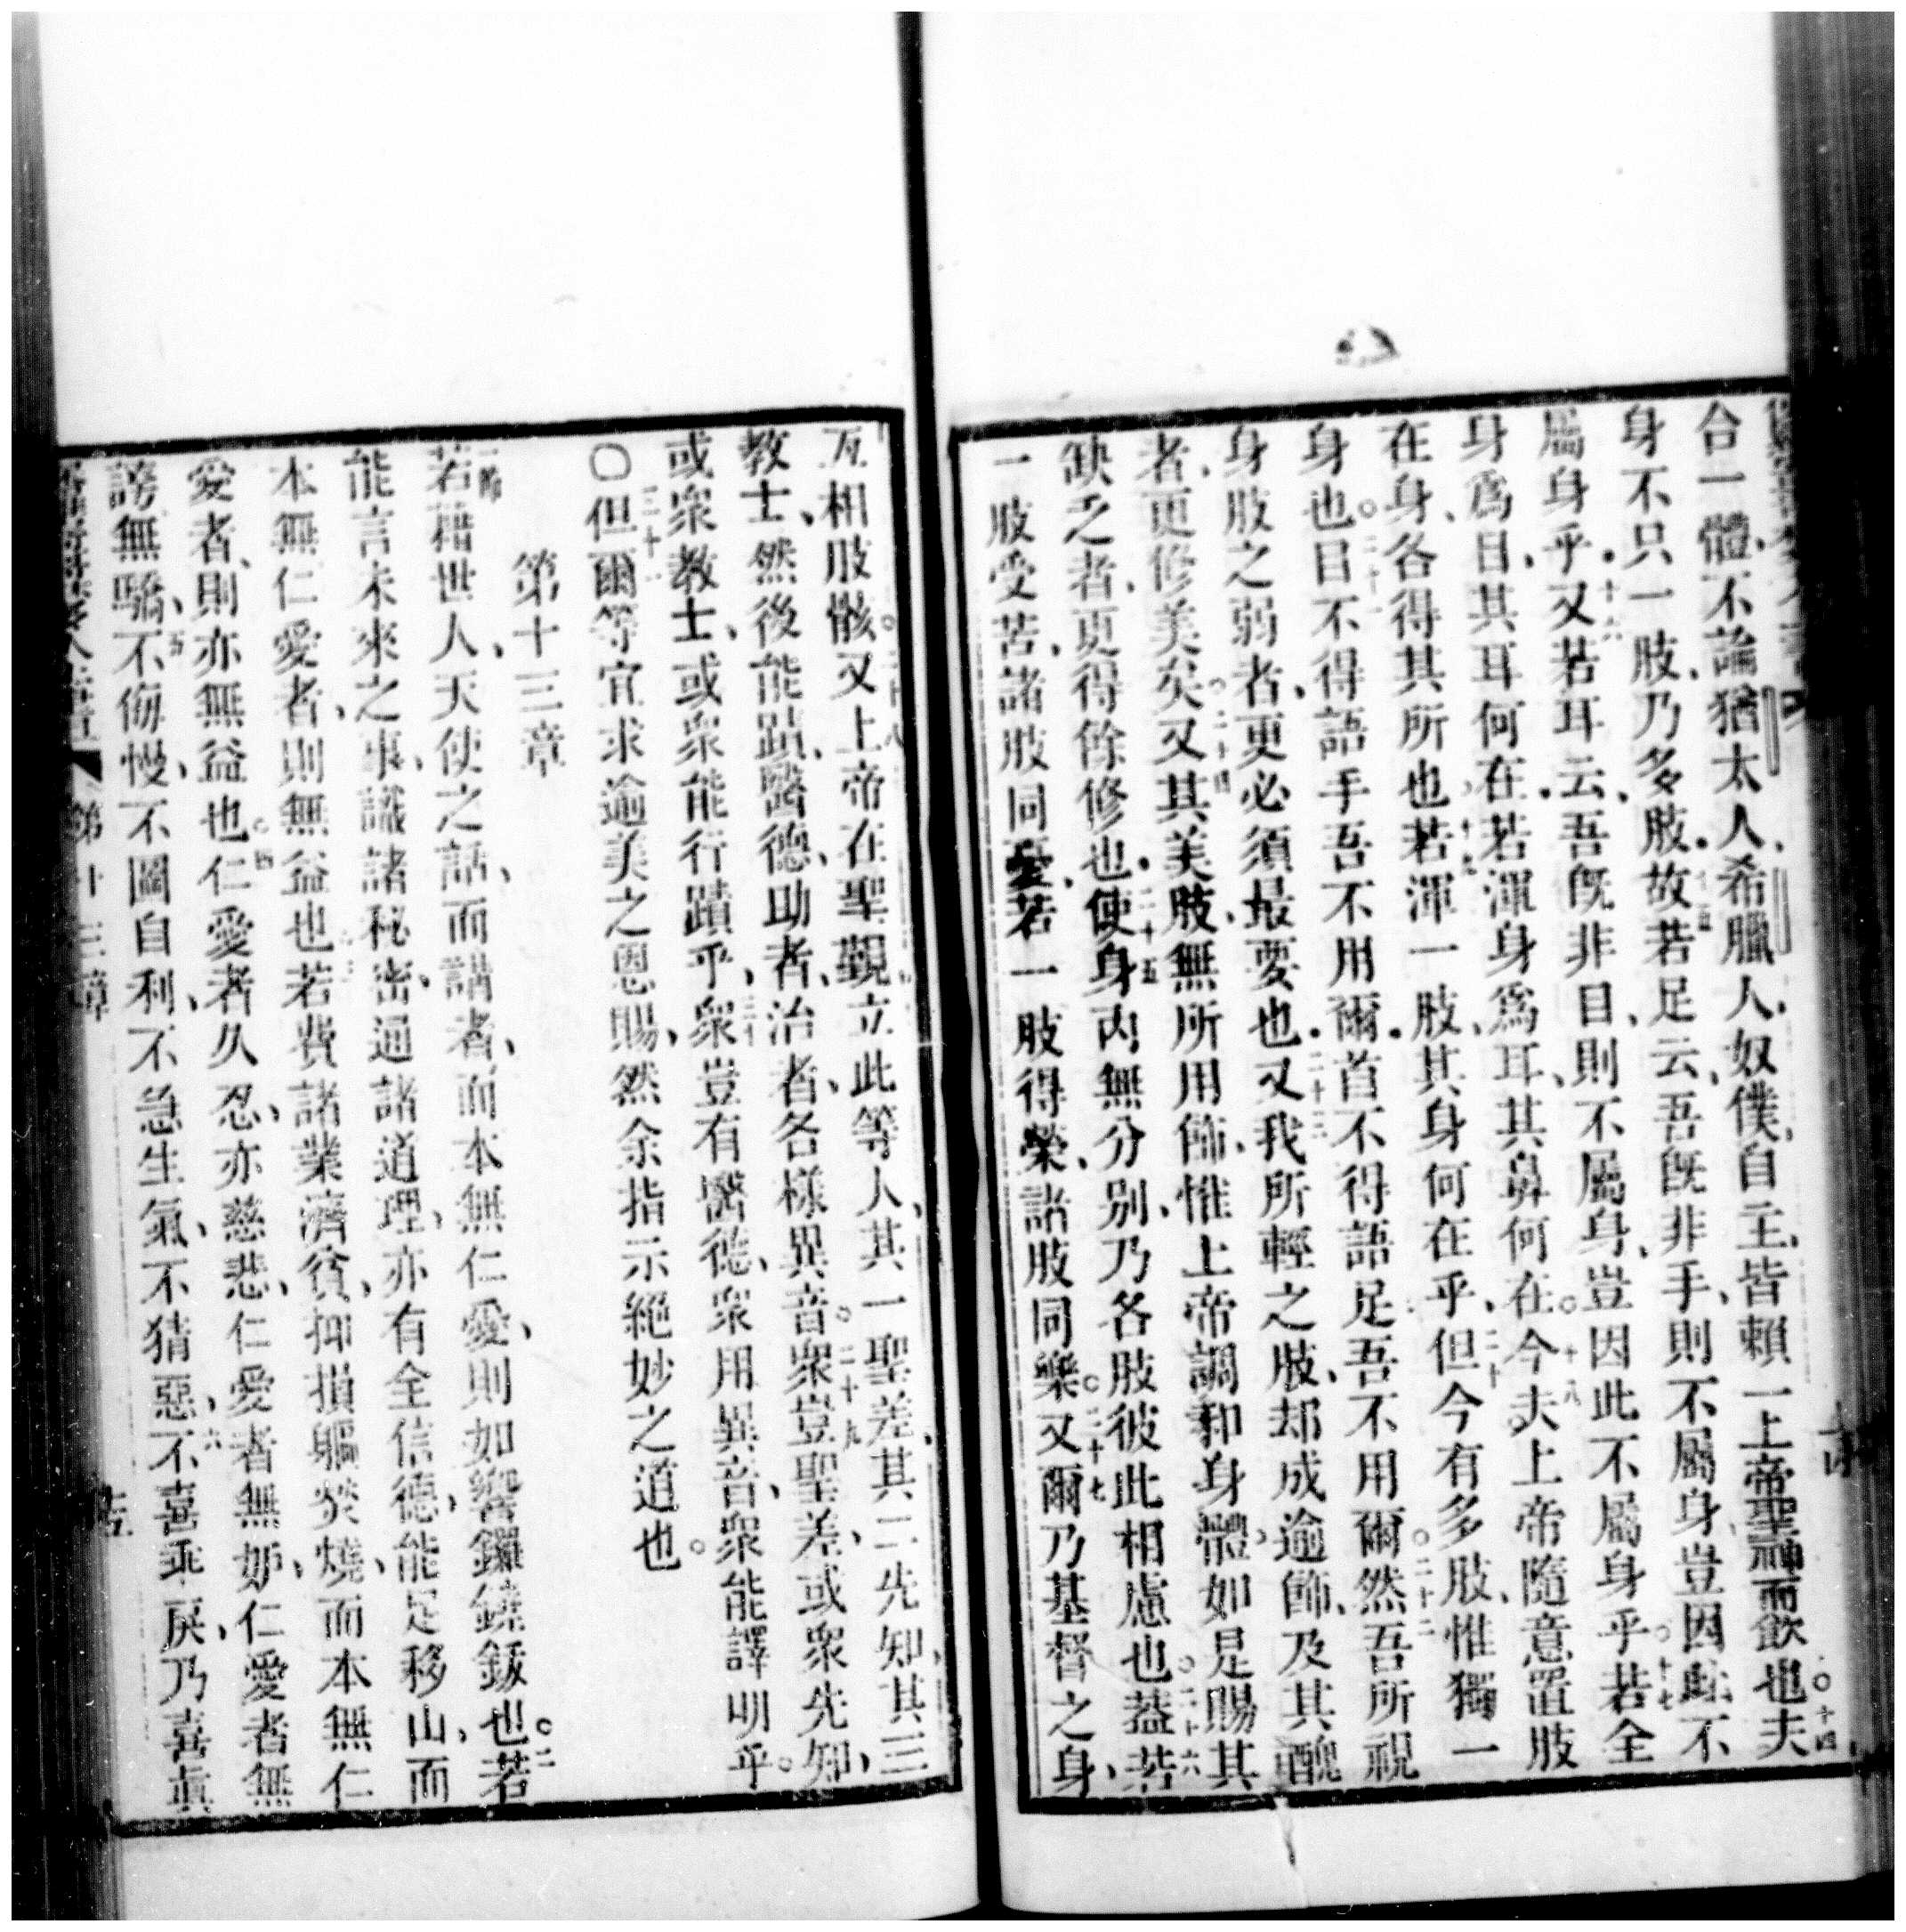 合一體、不論猶太人、希臘人、奴僕、自主、皆賴一上帝聖神而飲也。十四夫
身不只一肢、乃多肢。故若足云、吾旣非手、則不屬身、豈因此不
屬身乎。十六又若耳云、吾旣非目、則不屬身、豈因此不屬身乎。十七若全
身爲目、其耳何在、若渾身爲耳、其鼻何在。十八今夫上帝隨意置肢
在身、各得其所也。十九若渾一肢、其身何在乎、二十但今有多肢、惟獨一
身也。二十一目不得語手、吾不用爾、首不得語足、吾不用爾。二十二然吾所視
身肢之弱者、更必須最要也。二十三又我所輕之肢、却成逾飾、及其醜
者、更修美矣。二十四又其美肢、無所用飾、惟上帝調和身體、如是賜其
缺乏者、更得餘修也。二十五使身內無分別、乃各肢彼此相慮也。二十六蓋若
一肢受苦、諸肢同憂、若一肢得榮、諸肢同樂。二十七又爾乃基督之身、
互相肢骸。二十八又上帝在聖觀立此等人、其一聖差、其二先知、其三
教士、然後能蹟、醫德、助者、治者、各樣異音。二十九衆豈聖差、或衆先知、
或衆教士、或衆能行蹟乎、三十衆豈有醫德、衆用異音、衆能譯明乎。
○三十一但爾等宜求逾美之恩賜、然余指示絕妙之道也。
第十三章
一節若藉世人、天使之話、而講者、而本無仁愛、則如響鑼鐃鈸也。二若
能言未來之事、識諸秘密、通諸道理、亦有全信德、能足移山、而
本無仁愛者、則無益也。三若費諸業濟貧、抑損軀焚燒、而本無仁
愛者、則亦無益也。四仁愛者久忍、亦慈悲、仁愛者無妒、仁愛者無
謗無驕、五不侮慢、不圖自利、不急生氣、不猜惡、六不喜乖戾、乃喜眞
第十三章